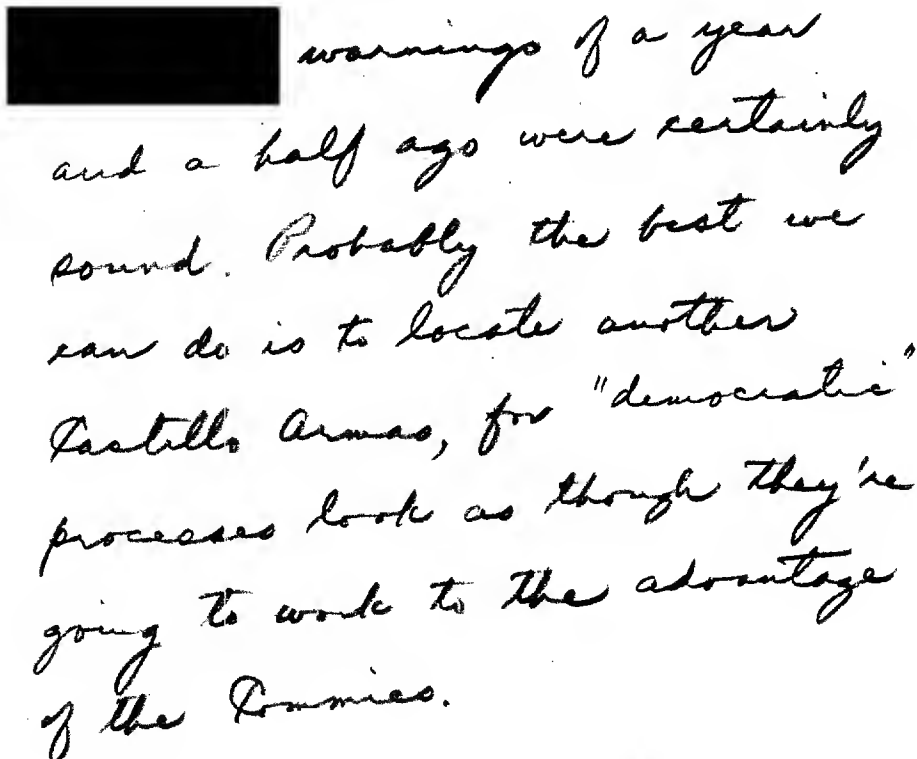 warnings of a year
and a half ago were certainly
sound. Probably the best we
can do is to locate another
Castillo Armas, for "democratic"
processes look as though they're
going to work to the advantage
of the Commies.